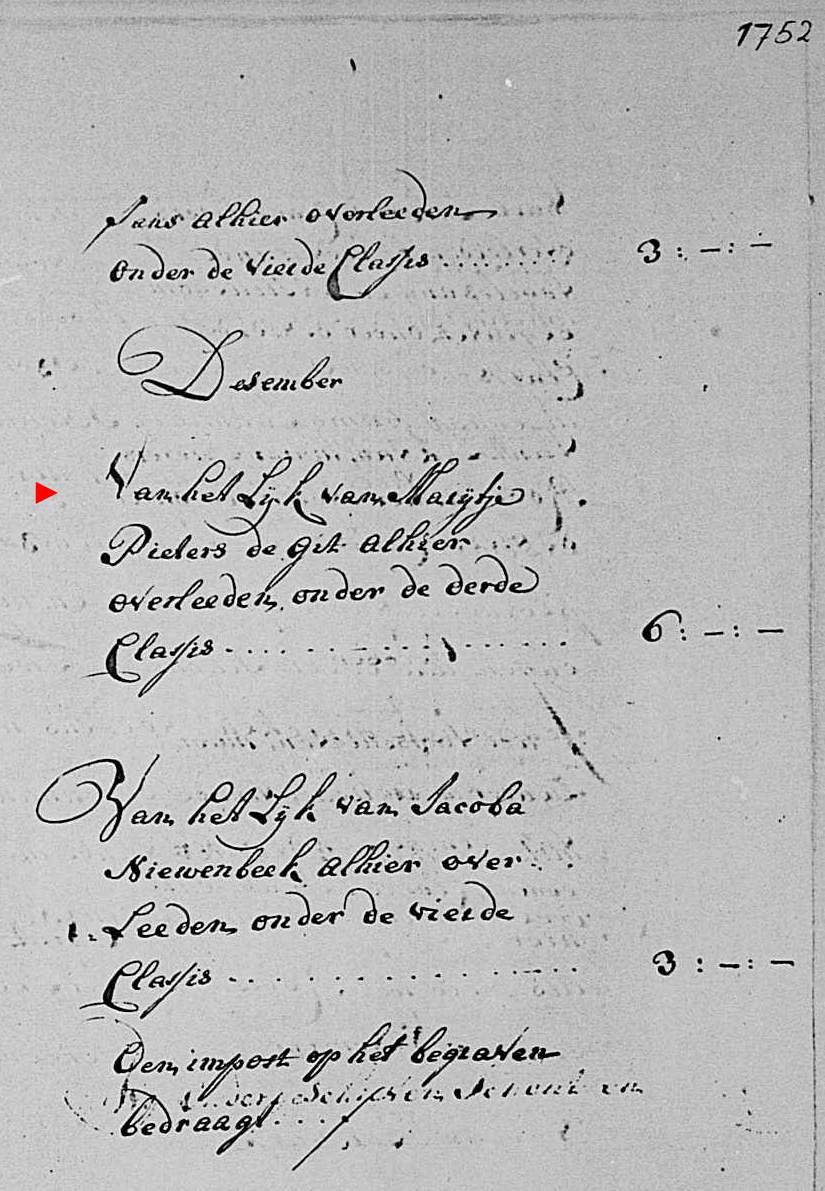 1752
Jans alhier overleeden
onder de vierde Classis . . . . . . . 3 : – : –
Desember
Van het Lijk van Maeijtje
Pieters de git alhier
overleeden onder de derde
Classis . . . . . . . . . . . . 6 : – : –
Van het Lijk van Jacoba
Niewenbeek alhier over
Leeden onder de vierde
Classis . . . . . . . . . . . . 3 : – : –
Den impost op het begraven
bedraagt . . . .